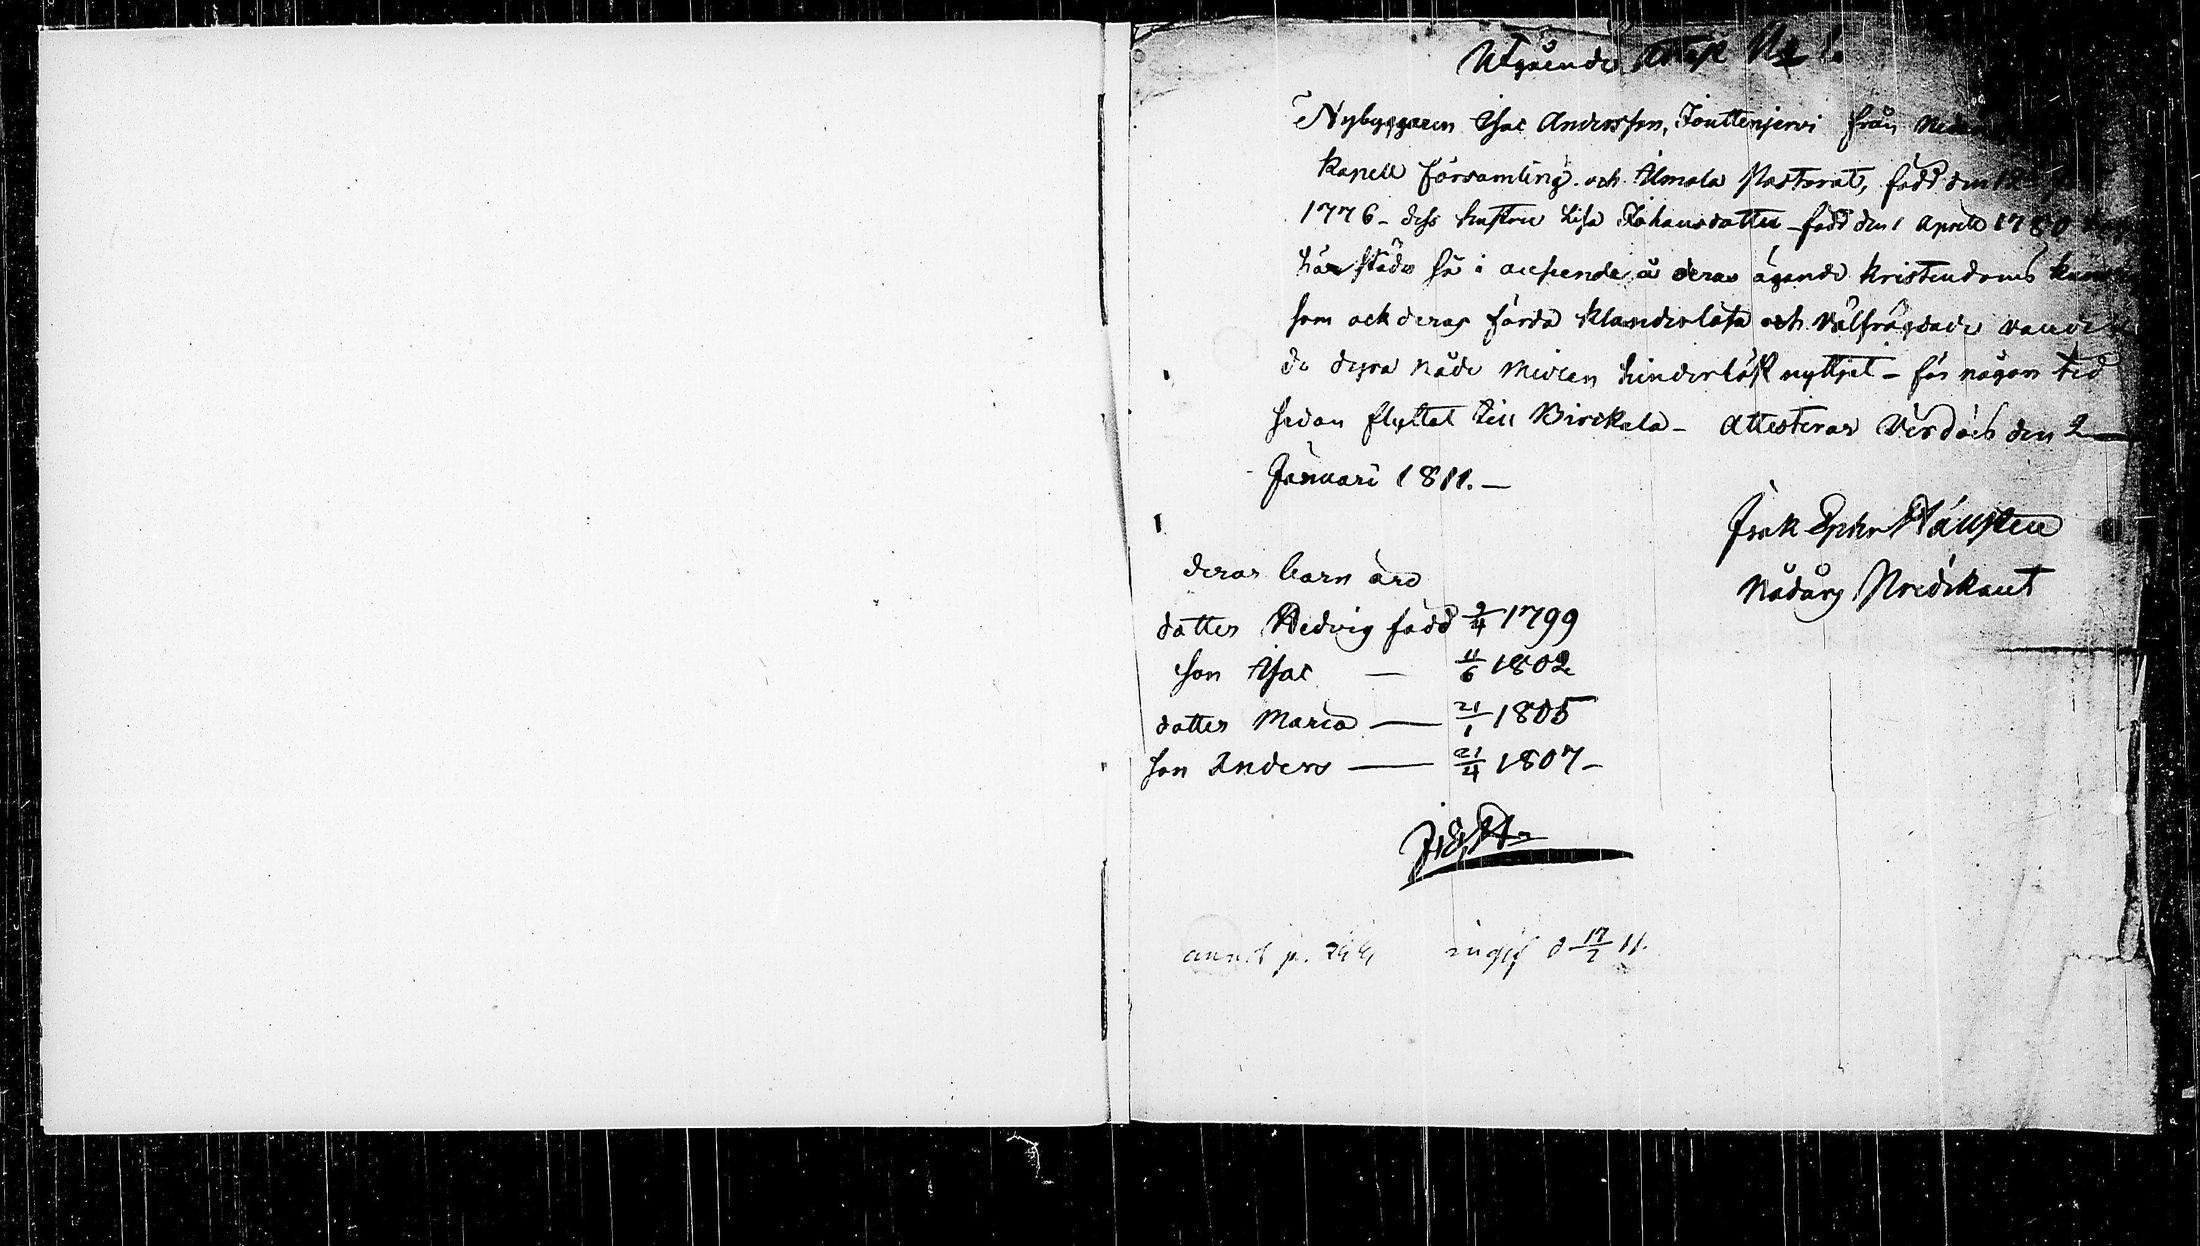 Utgående Attest No 1.
Nybyggaren Isac Andersson, Jouttenjervi från
Kapell församling och Ilmola Pastorat, född den 12
1776 - dess hustru Lisa Johansdotter - född den 1 Aprill 1780
härstädes så i anseende å deras ägande Kristendoms
som ock deras förda klanderlösa och välfrägdade
de dyra nåde medlen hinderlöst nyttjat - för någon tid
sedan flyttat till Birckala - Attesteras Virdois den 2
Januari 1811. -
Isak Ephr Hällsten
Nådårs Predikant
deras barn äro
dotter Hedvig född 9/4 1799
son Isac — 11/6 1802
dotter Maria — 21/1 1805
son Anders — 21/4 1807 -
J. E. H.
p. 244, ingif d 17/2 11.